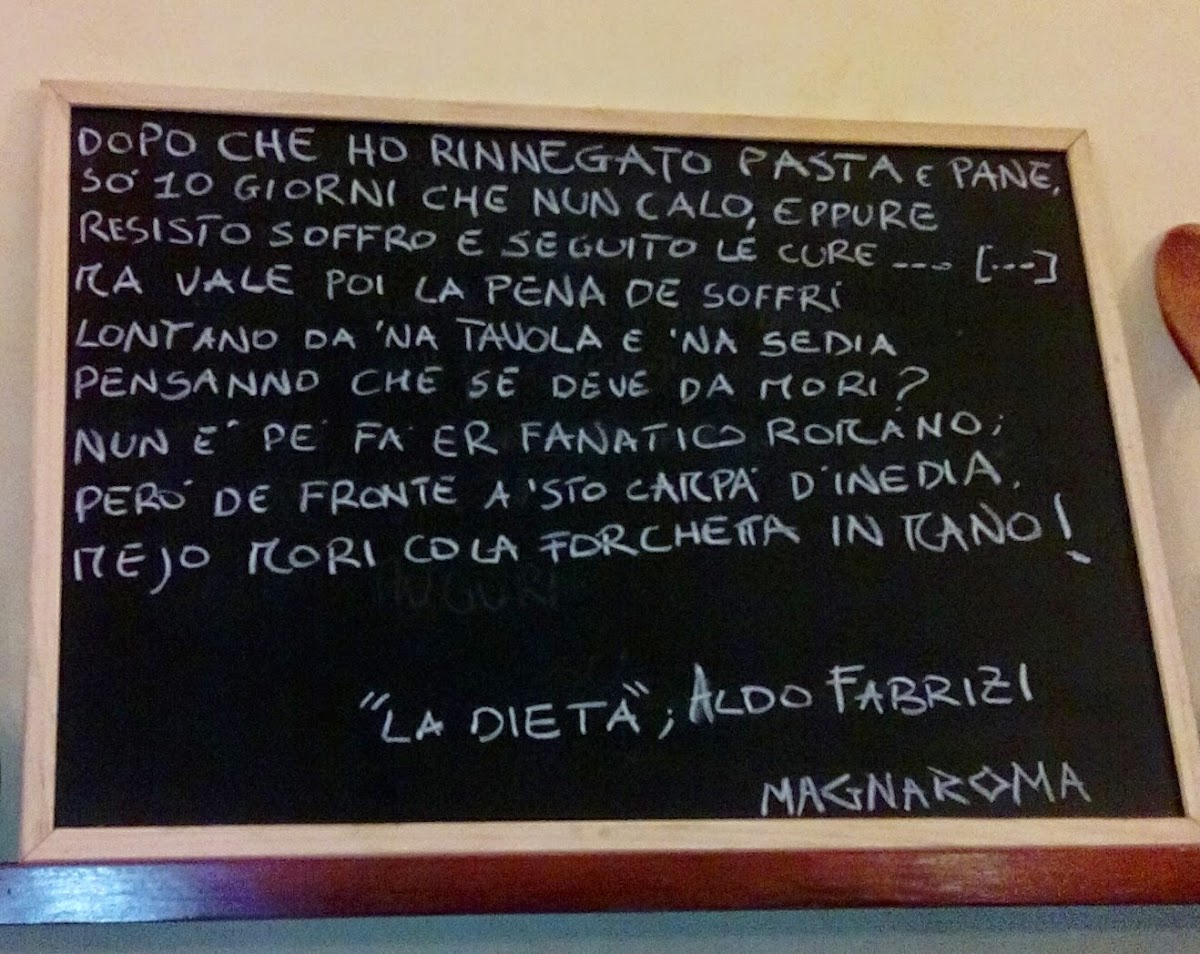 DOPO CHE HO RINNEGATO PASTA E PANE,
SO' 10 GIORNI CHE NUN CALO, EPPURE
RESISTO SOFFRO E SEGUITO LE CURE .... [...]
MA VALE POI LA PENA DE SOFFRÌ
LONTANO DA 'NA TAVOLA E 'NA SEDIA
PENSANNO CHE SE DEVE DA MORÌ?
NUN E' PE' FA' ER FANATICO ROMANO;
PERO' DE FRONTE A 'STO CAMPA' D'INEDIA,
MEJO MORÌ CO LA FORCHETTA IN MANO!
AUGURI
"LA DIETA"; ALDO FABRIZI
MAGNAROMA